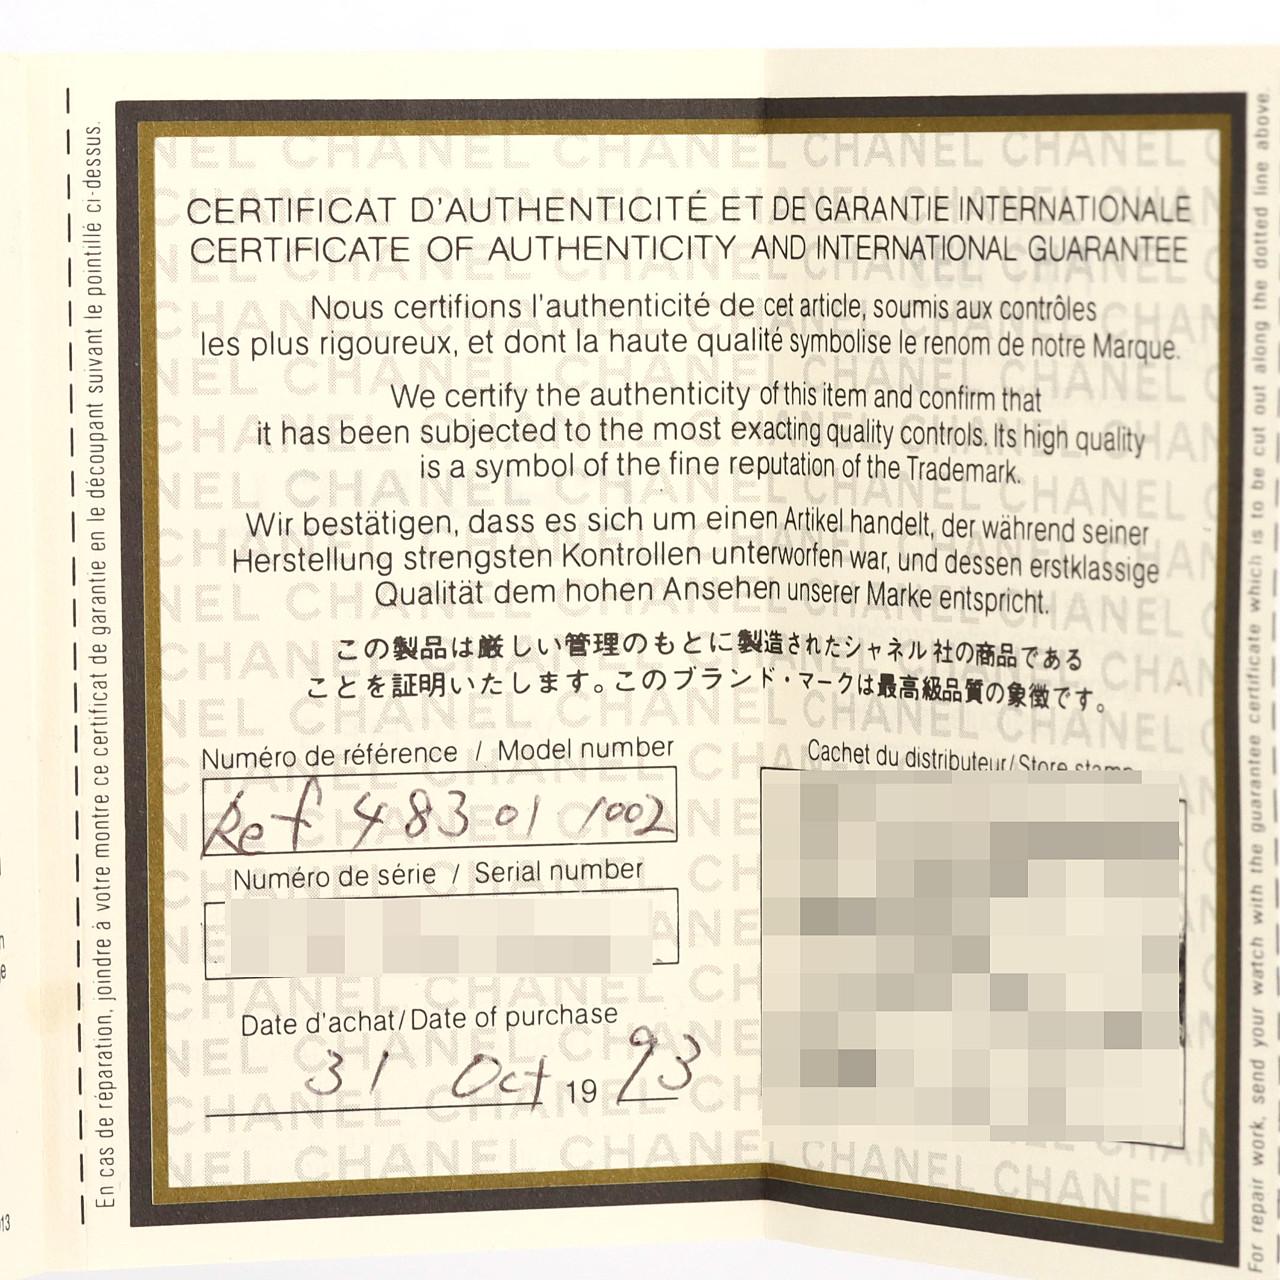 En cas de réparation, joindre à votre montre ce certificat de garantie en le découpant suivant le pointillé ci-dessus.
CERTIFICAT D'AUTHENTICITÉ ET DE GARANTIE INTERNATIONALE
CERTIFICATE OF AUTHENTICITY AND INTERNATIONAL GUARANTEE
Nous certifions l'authenticité de cet article, soumis aux contrôles
les plus rigoureux, et dont la haute qualité symbolise le renom de notre Marque.
We certify the authenticity of this item and confirm that
it has been subjected to the most exacting quality controls. Its high quality
is a symbol of the fine reputation of the Trademark.
Wir bestätigen, dass es sich um einen Artikel handelt, der während seiner
Herstellung strengsten Kontrollen unterworfen war, und dessen erstklassige
Qualität dem hohen Ansehen unserer Marke entspricht.
この製品は厳しい管理のもとに製造されたシャネル社の商品である
ことを証明いたします。このブランド・マークは最高級品質の象徴です。
Numéro de référence / Model number
Ref 48301 1002
Numéro de série / Serial number
Date d'achat/Date of purchase
31 Oct 1993
Cachet du distributeur/Store stamp
For repair work, send your watch with the guarantee certificate which is to be cut out along the dotted line above.
CHANEL